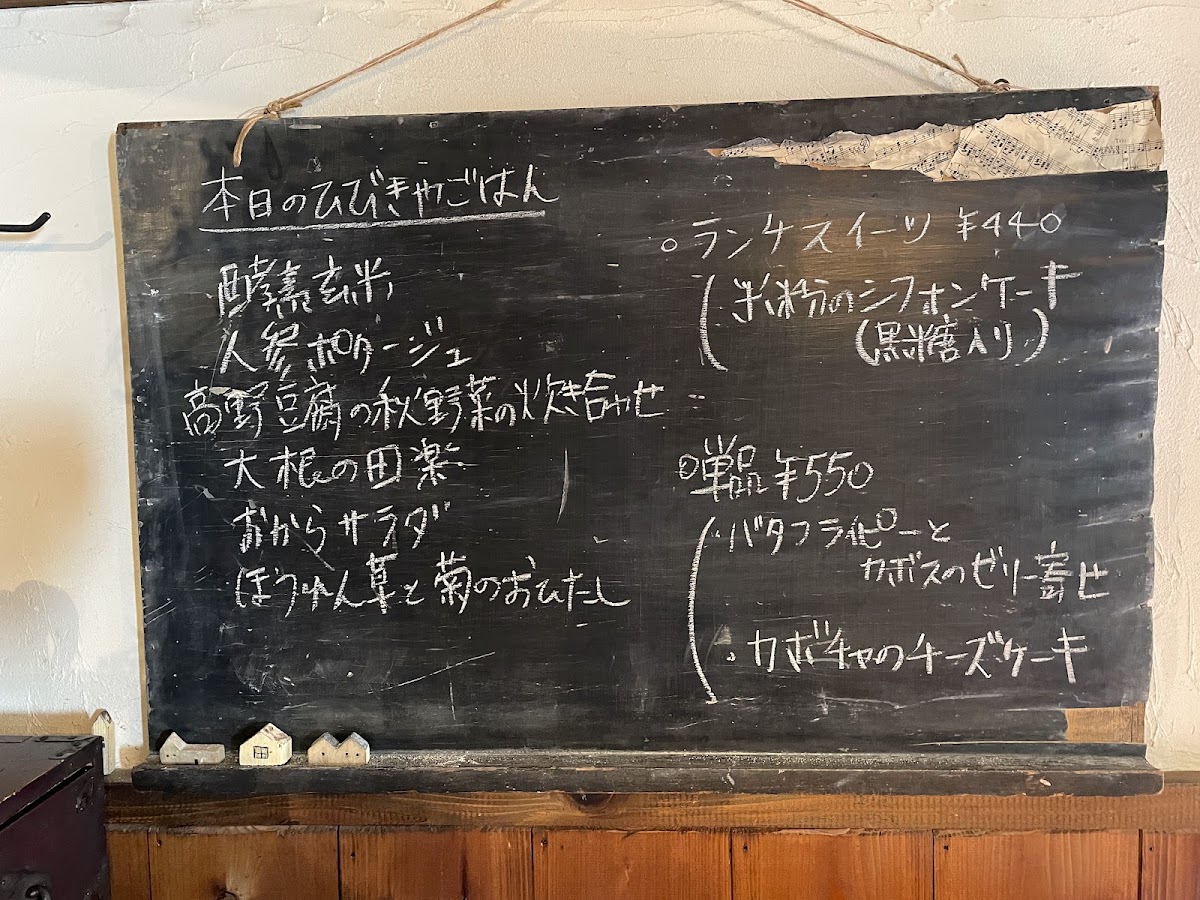 本日のひびきやごはん
酵素玄米
人参ポタージュ
高野豆腐の秋野菜の炊き合わせ
大根の田楽
おからサラダ
ほうれん草と菊のおひたし
○ランチスイーツ ¥440
米粉のシフォンケーキ
(黒糖入り)
○単品 ¥550
・バタフライピーと
カボスのゼリー寄せ
・カボチャのチーズケーキ